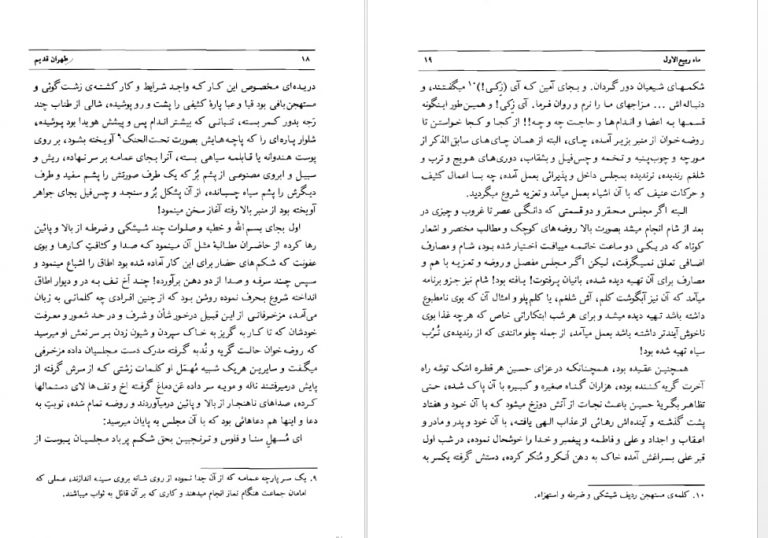 ۱۸ طهران قدیم
دریده‌ای مخصوص این کار که واجد شرایط و کار کشته‌ی زشت گوئی و
مستهجن‌بافی بود قبا و عبا پارهٔ کثیفی را پشت و رو پوشیده، شالی از طناب چند
رَجه بدور کمر بسته، تنبانی که بیشتر اندام پس و پیش هویدا بود پوشیده،
شلوار پاره‌ای را که پاچه‌هایش بصورت تحت‌الحنک۹ آویخته بشود، بر روی
پوست هندوانه یا قابلمه سیاهی بسته، آنرا بجای عمامه بر سر نهاده، ریش و
سبیل و ابروی مصنوعی از پشم بُز که یک طرف صورتش را پشم سفید و طرف
دیگرش را پشم سیاه چسبانده، از آن پشکل بز و سنجد و چس‌فیل بجای جواهر
آویخته بود از منبر بالا رفته آغاز سخن مینمود!
اول بجای بسم الله و خطبه و صلوات چند شیشکی و ضرطه از بالا و پائین
رها کرده از حاضران مطالبهٔ مثل آن مینمود که صدا و کثافتِ کارها و بوی
عفونت که شکم‌های حضار برای این کار آماده شده بود اطاق را اشباع مینمود و
سپس چند سرفه و صدا از دو دهن برآورده! چند اَخ تف به در و دیوار اطاق
انداخته شروع بحرف نموده روشن بود که از چنین افرادی چه کلماتی به زبان
می‌آمد، مزخرفاتی از این قبیل درخور شأن و شرف و در حد شعور و معرفت
خودشان که تا کار به گریز به خاک سپردن و شیون زدن بر سر نعش او میرسید
که روضه خوان حالت گریه و نُدبه گرفته مدرک دست مجلسیان داده مزخرفی
میگفت و سایرین هریک شبیه مُهمَل او کلمات زشتی که از سرش گرفته از
پایش درمیرفتند ناله و مویه سر داده عَن دماغ گرفته اخ و تف‌ها لای دستمالها
کرده، صداهای ناهنجار از بالا و پائین درمیآوردند و روضه تمام شده، نوبتِ به
دعا و اینها هم دعاهائی بود که با آن مجلس به پایان میرسید:
ای مُسهلِ سنا و فلوس و ترنجبین بحق شکم پرباد مجلسیان یبوست از
۹. یک سر پارچه عمامه که از آن جدا نموده از روی شانه بروی سینه اندازند، عملی که
امامان جماعت هنگام نماز انجام میدهند و کاری که بر آن قائل به ثواب میباشند.
ماه ربیع‌الاول ۱۹
شکمهای شیعیان دور گردان. و بجای آمین که آی (زِکی!)۱۰ میگفتند، و
دنباله‌اش ... مزاجهای ما را نرم و روان فرما. آی زِکی! و همین‌طور اینگونه
قسمها به اعضا و اندامها و حاجت چه و چه!! از کجا و کجا خواستن تا
روضه‌خوان از منبر بزیر آمده، چای، البته از همان چای‌های سابق الذکر از
مورچه و چوب‌پنبه و تخمه و چس‌فیل و بشقاب، دوری‌های هویج و ترب و
شلغم رندیده، نرندیده بمجلس داخل و پذیرائی بعمل آمده، چه با اعمال کثیف
و حرکات عنیف که با آن اشیاء بعمل میآمد و تعزیه شروع میگردید.
البته اگر مجلس محقر و دو قسمتی که دانگی عصر تا غروب و چیزی در
بعد از شام انجام میشد بصورت بالا روضه‌های کوچک و مطالب مختصر و اشعار
کوتاه که در یکی دو ساعت خاتمه مییافت اختیار شده بود، شام و مصارف
اضافی تعلق نمیگرفت، لیکن اگر مجلس مفصل و روضه و تعزیه با هم و
مصارف برای آن تهیه دیده شده، بانیان پرفتوت! یافته بود! شام نیز جزو برنامه
میآمد که آن نیز آبگوشت کلم، آش شلغم، یا کلم‌پلو و امثال آن که بوی نامطبوع
داشته باشد تهیه دیده میشد و برای هر شب ابتکاراتی خاص که هرچه غذا بوی
ناخوش‌آیندتر داشته باشد بعمل میآمد، از جمله چلو مانندی که از رندیده‌ی تُرُب
سیاه تهیه شده بود!
همچنین عقیده بود، همچنانکه در عزای حسین هر قطره اشک توشه راه
آخرت گریه‌کننده بوده، هزاران گناه صغیره و کبیره با آن پاک شده، حتی
تظاهر بگریهٔ حسین باعث نجات از آتش دوزخ میشود که با آن خود و هفتاد
پشت گذشته و آینده‌اش رهائی از عذاب الهی یافته، با آن خود و پدر و مادر و
اعقاب و اجداد و علی و فاطمه و پیغمبر و خدا را خوشحال نموده، در شب اول
قبر علی بسراغش آمده خاک به دهن اَنکر و مُنکر کرده، دستش گرفته یکسر به
۱۰. کلمه‌ی مستهجن ردیف شیشکی و ضرطه و استهزاء.